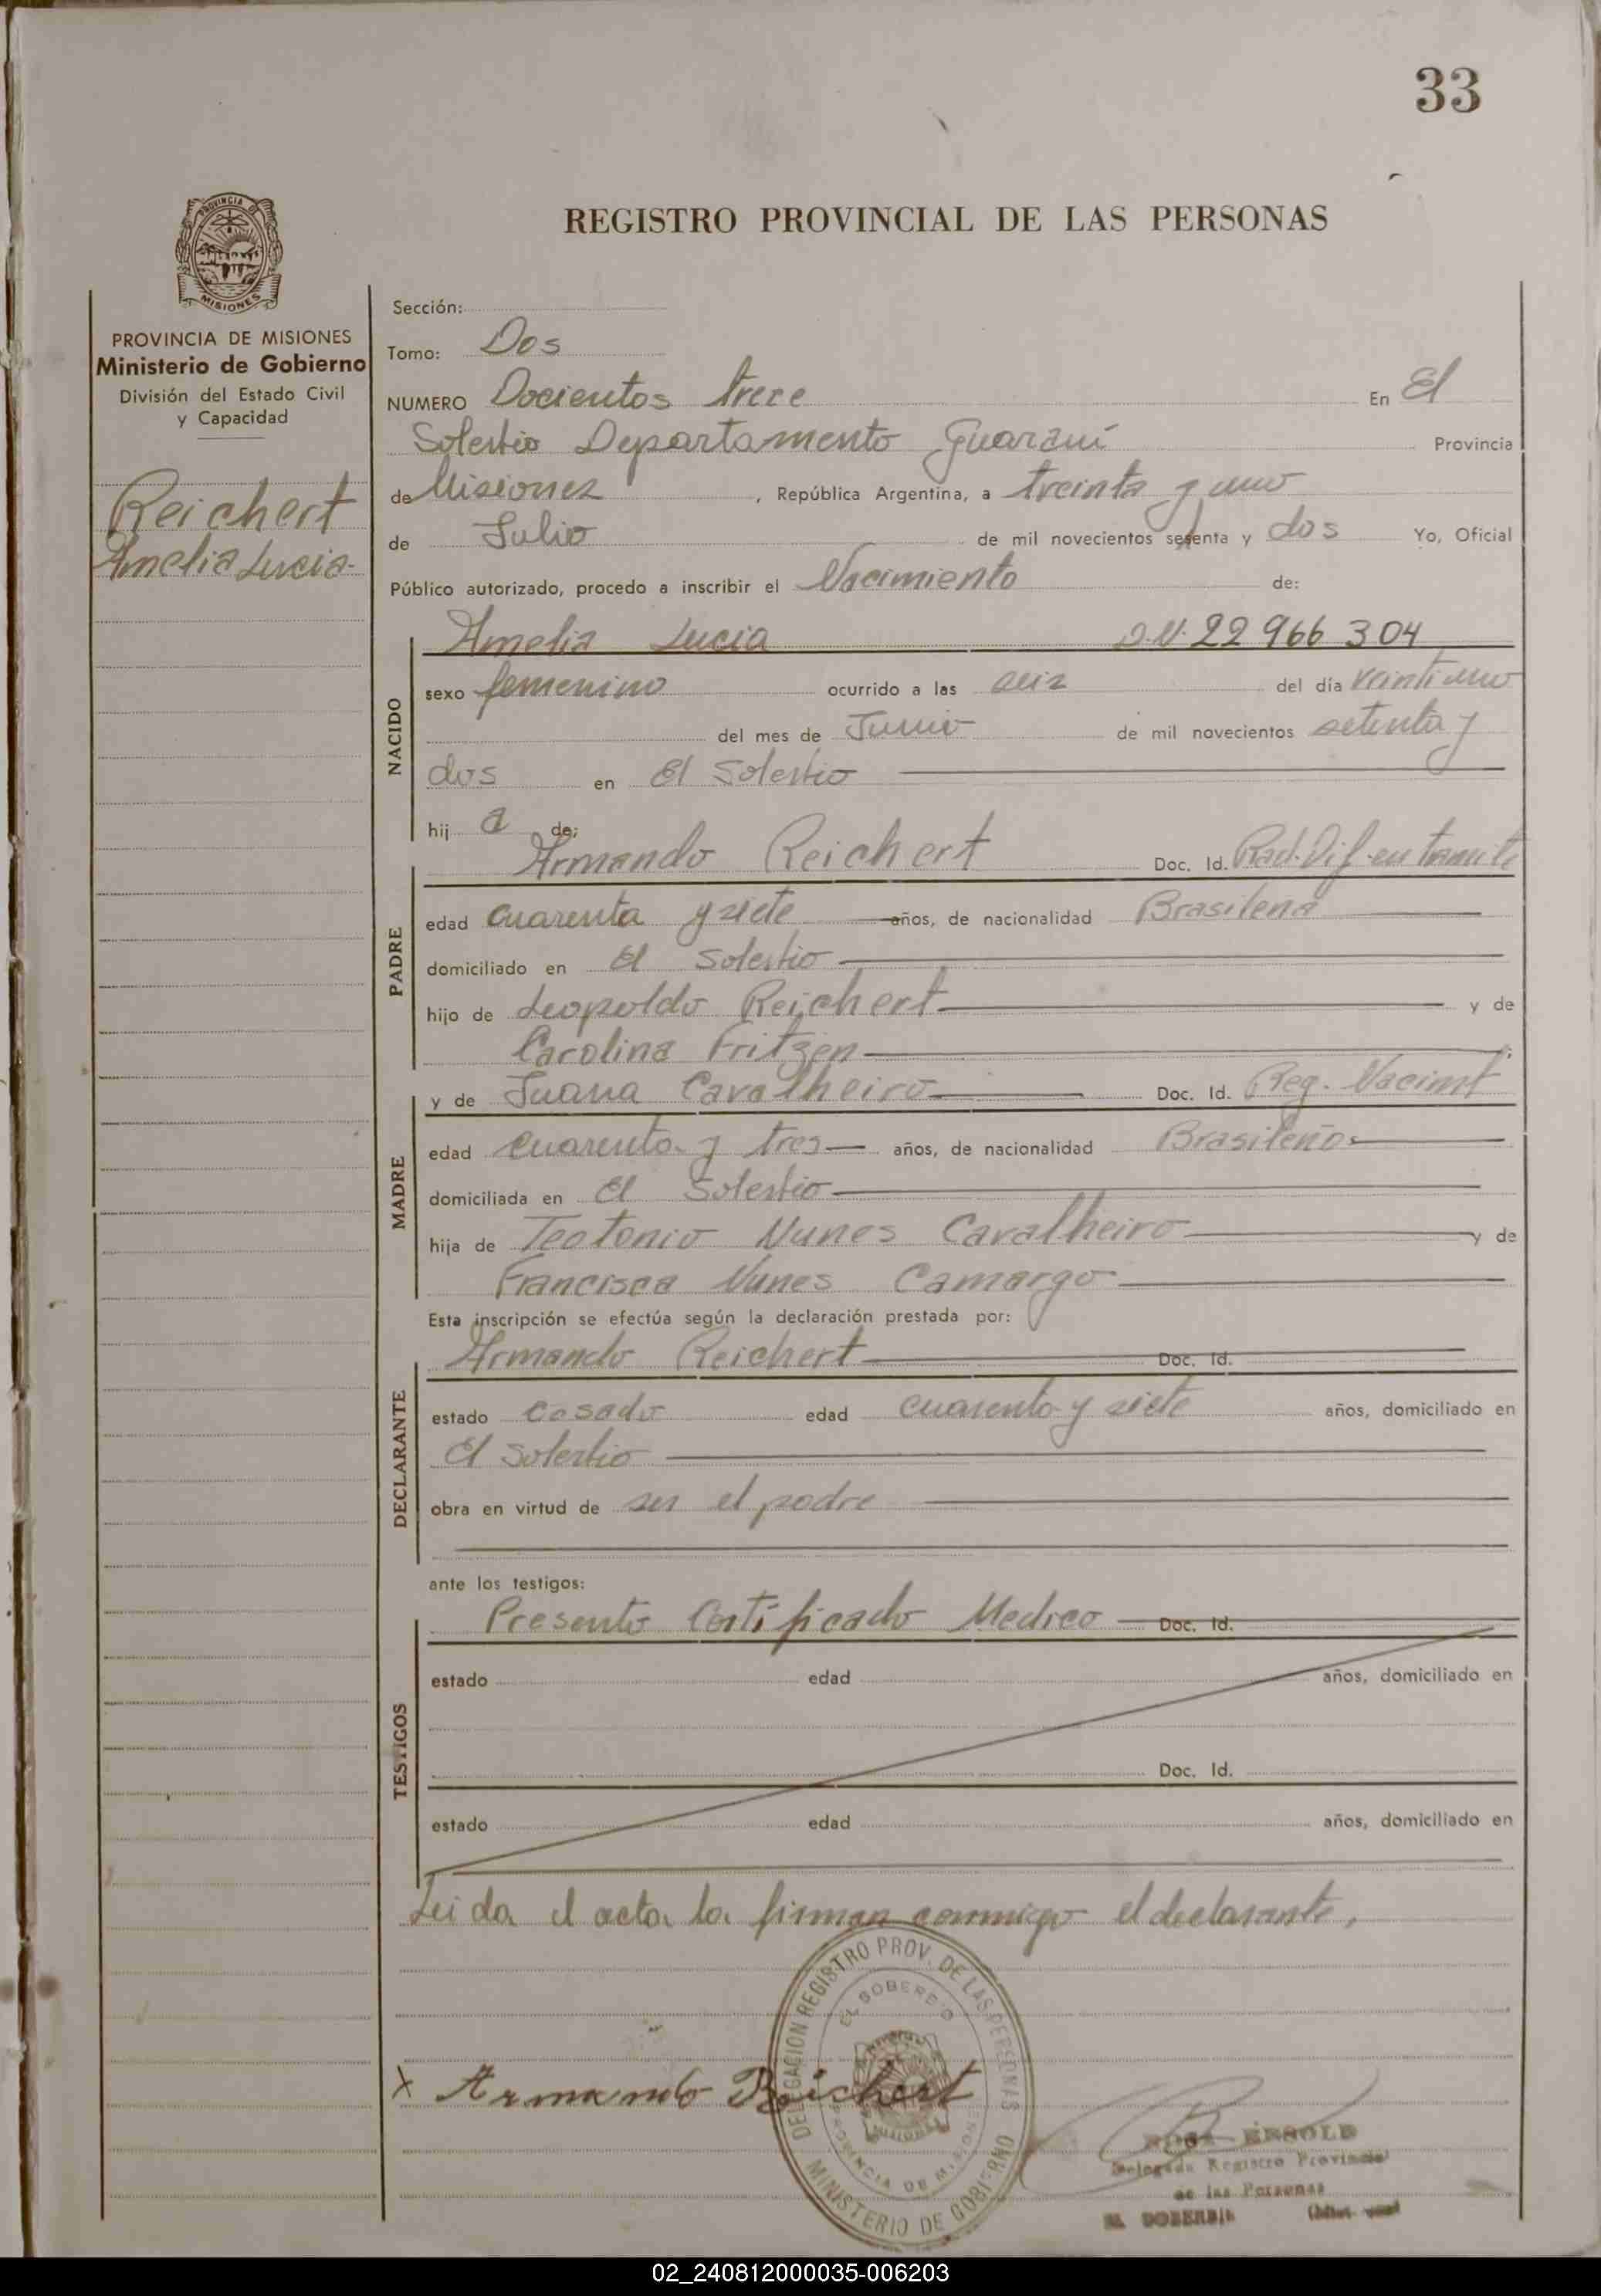 33
PROVINCIA DE
MISIONES
REGISTRO PROVINCIAL DE LAS PERSONAS
PROVINCIA DE MISIONES
Ministerio de Gobierno
División del Estado Civil
y Capacidad
Reichert
Amelia Lucia-
Sección:
Tomo: Dos
NUMERO Docientos trece En El
Solerbio Departamento Guaraní Provincia
de Misiones, República Argentina, a treinta y uno
de Julio de mil novecientos setenta y dos Yo, Oficial
Público autorizado, procedo a inscribir el Nacimiento de:
Amelia Lucia D.N. 22 966 304
NACIDO
sexo femenino ocurrido a las seis del día veintiuno
del mes de Junio de mil novecientos setenta y
dos en El Solerbio
hij a de:
Armando Reichert Doc. Id. Rad. Dif. en tramite
PADRE
edad cuarenta y siete años, de nacionalidad Brasileña
domiciliado en El Solerbio
hijo de Leopoldo Reichert y de
Carolina Fritzen
y de Juana Cavalheiro Doc. Id. Reg. Nacimt
MADRE
edad cuarenta y tres años, de nacionalidad Brasileña
domiciliada en El Solerbio
hija de Teotonio Nunes Cavalheiro y de
Francisca Nunes Camargo
Esta inscripción se efectúa según la declaración prestada por:
Armando Reichert Doc. Id.
DECLARANTE
estado casado edad cuarenta y siete años, domiciliado en
El Solerbio
obra en virtud de ser el padre
ante los testigos:
Presento Certificado Medico Doc. Id.
TESTIGOS
estado edad años, domiciliado en
Doc. Id.
estado edad años, domiciliado en
Leida el acta la firman conmigo el declarante,
DELEGACION REGISTRO PROV. DE LAS PERSONAS
EL SOBERBIO
PROVINCIA DE MISIONES
MINISTERIO DE GOBIERNO
X Armando Reichert
Delegada Registro Provincial
de las Personas
EL SOBERBIO
02_240812000035-006203